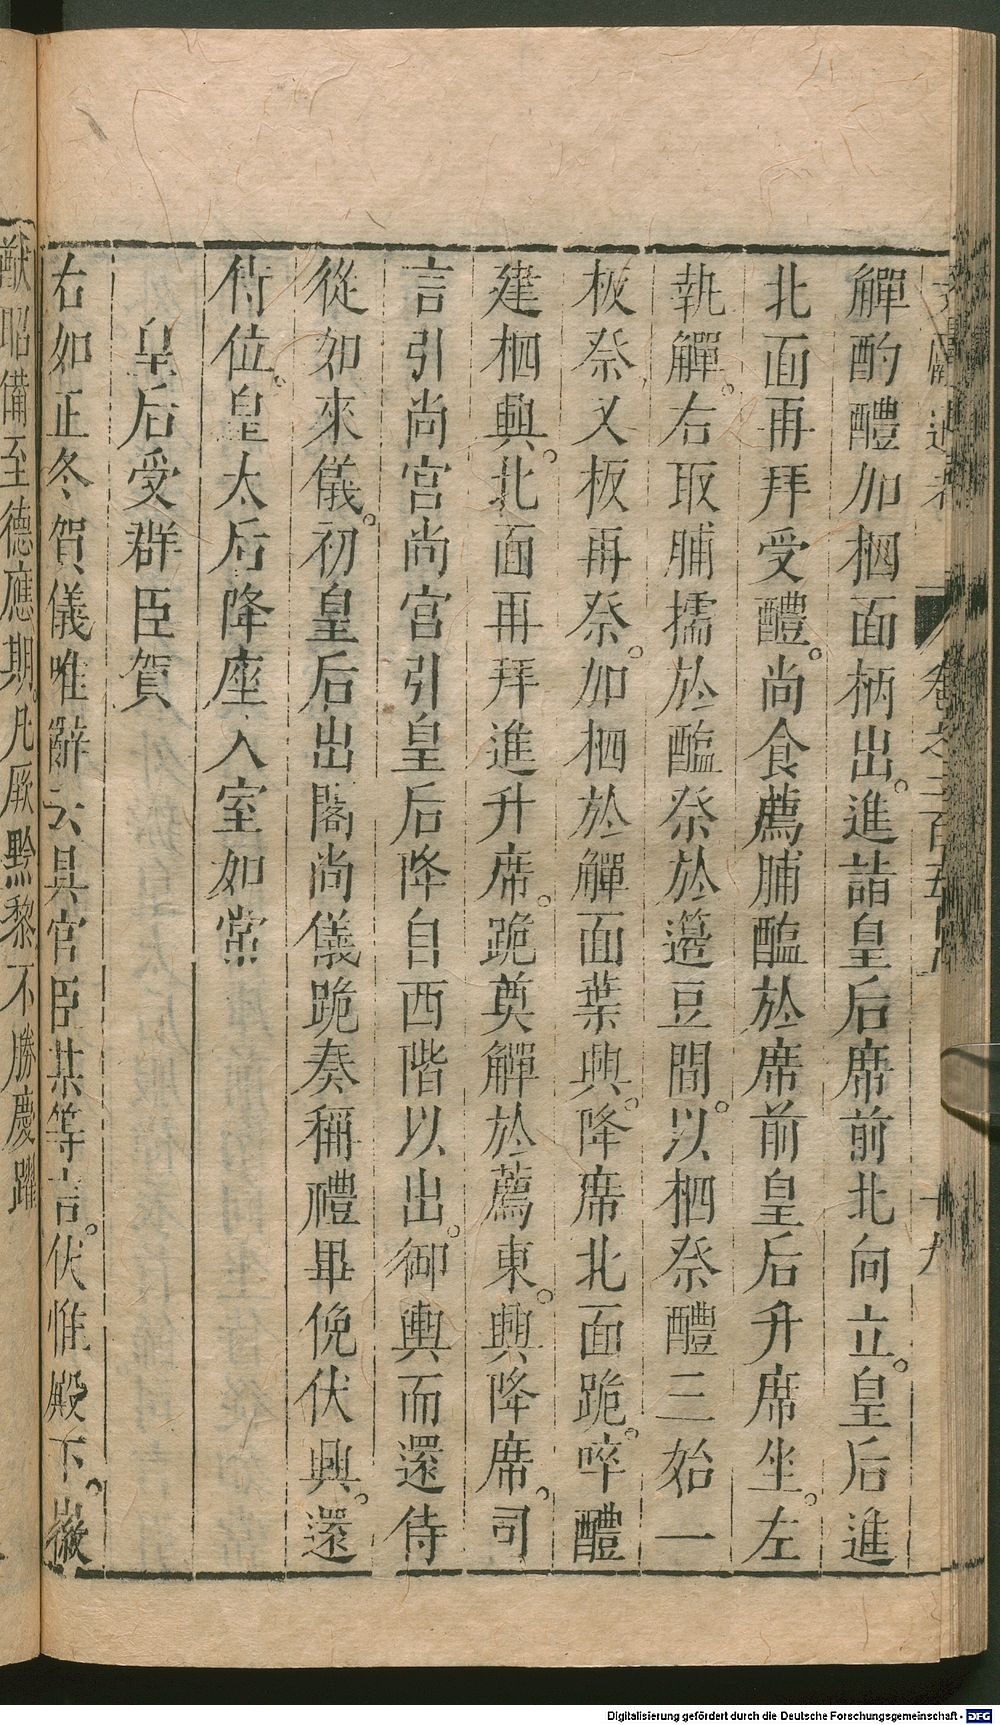 觶酌醴加柶面柄出。進詣皇后席前北向立。皇后進
北面再拜受醴。尚食薦脯醢於席前皇后升席坐。左
執觶。右取脯擩於醢祭於籩豆間。以柶祭醴三始一
板祭又板再祭。加柶於觶面葉興。降席北面跪。啐醴
建柶興。北面再拜進升席。跪奠觶於薦東。興降席。司
言引尚宮尚宮引皇后降自西階以出。御輿而還侍
從如來儀。初皇后出閤尚儀跪奏稱禮畢俛伏興。還
侍位。皇太后降座入室如常
皇后受群臣賀
右如正冬賀儀唯辭云具官臣某等言。伏惟殿下。徽
猷昭備至德應期。凡厥黔黎不勝慶躍
Digitalisierung gefördert durch die Deutsche Forschungsgemeinschaft - DFG